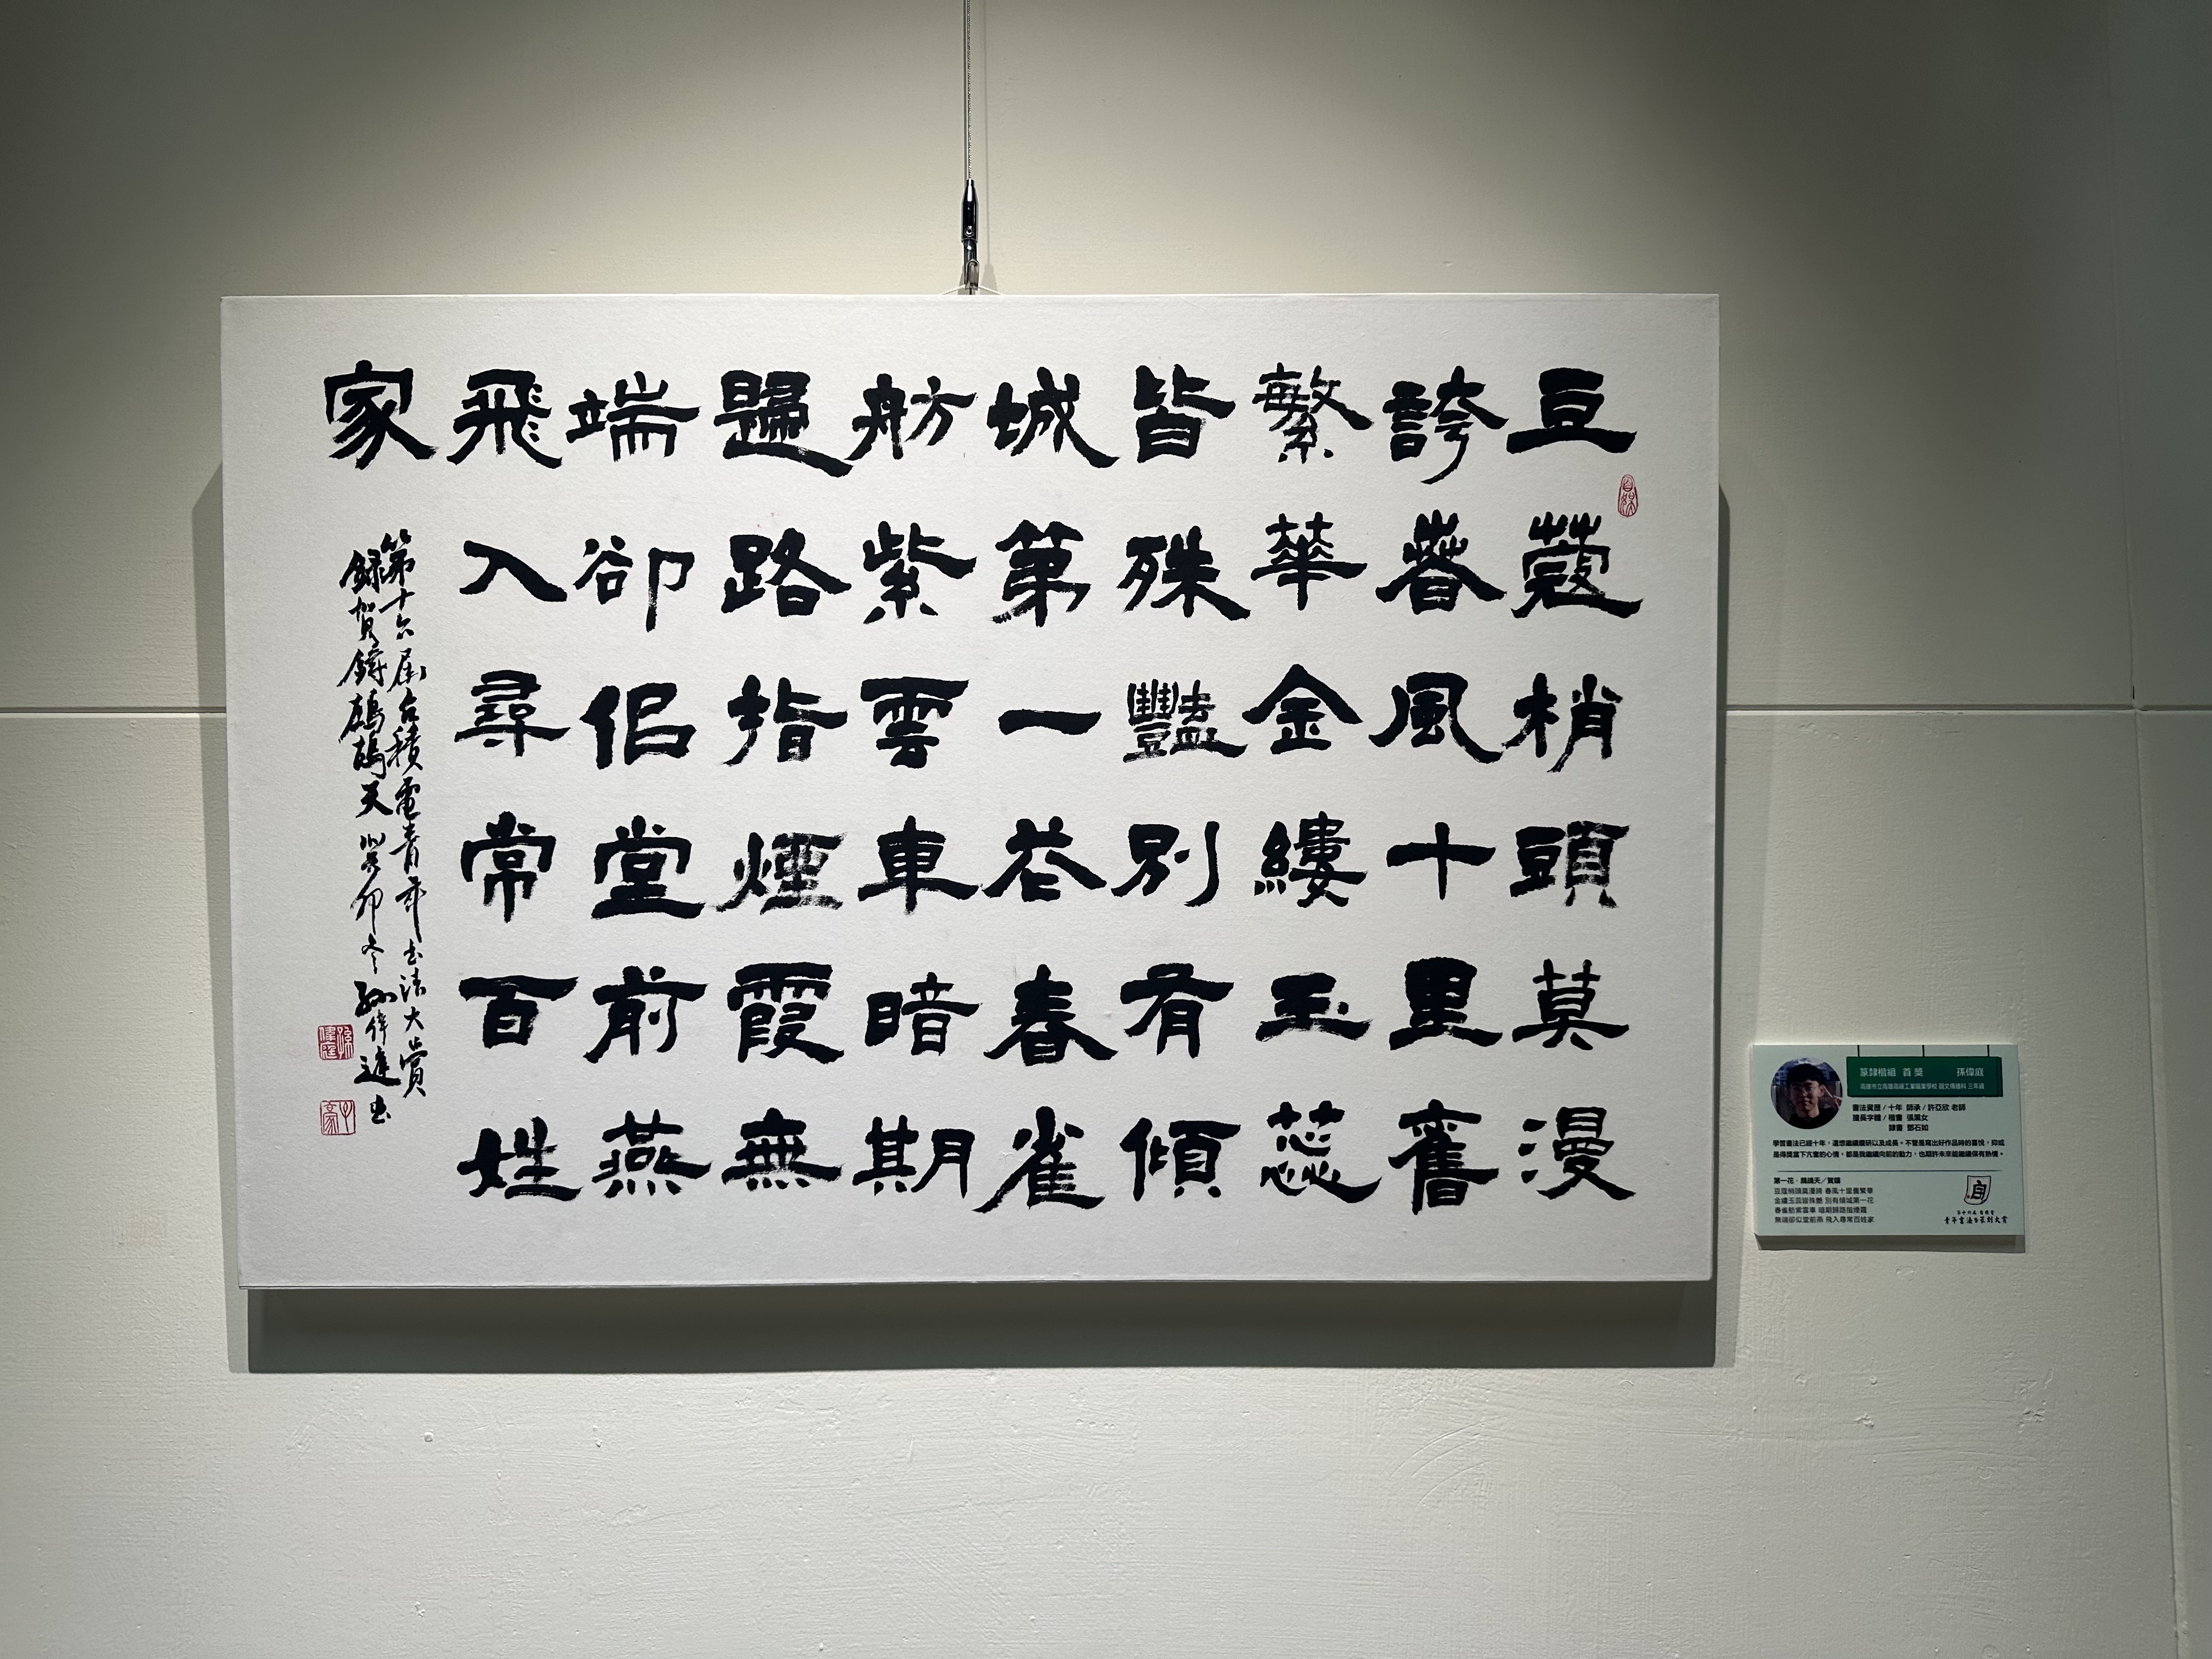 豆蔻梢頭莫漫
誇春風十里舊
繁華金縷玉蕊
皆殊豔別有傾
城第一花春雀
舫紫雲車暗期
歸路指煙霞無
端卻侣堂前燕
飛入尋常百姓
家
第十六屆台積電青年書法大賞
錄賀鑄鷓鴣天癸卯冬孫偉庭書
篆隸楷組 首獎 孫偉庭
高雄市立高雄高級工業職業學校 圖文傳播科 三年級
書法資歷/十年 師承/許亞欣 老師
擅長字體/楷書 張黑女
隸書 鄧石如
學習書法已經十年,還想繼續鑽研以及成長。不管是寫出好作品時的喜悅,抑或
是得獎當下亢奮的心情,都是我繼續向前的動力,也期許未來能繼續保有熱情。
第一花・鷓鴣天/賀鑄
豆蔻梢頭莫漫誇 春風十里舊繁華
金縷玉蕊皆殊艷 別有傾城第一花
春雀舫紫雲車 暗期歸路指煙霞
無端卻似堂前燕 飛入尋常百姓家
青年書法暨篆刻大賞